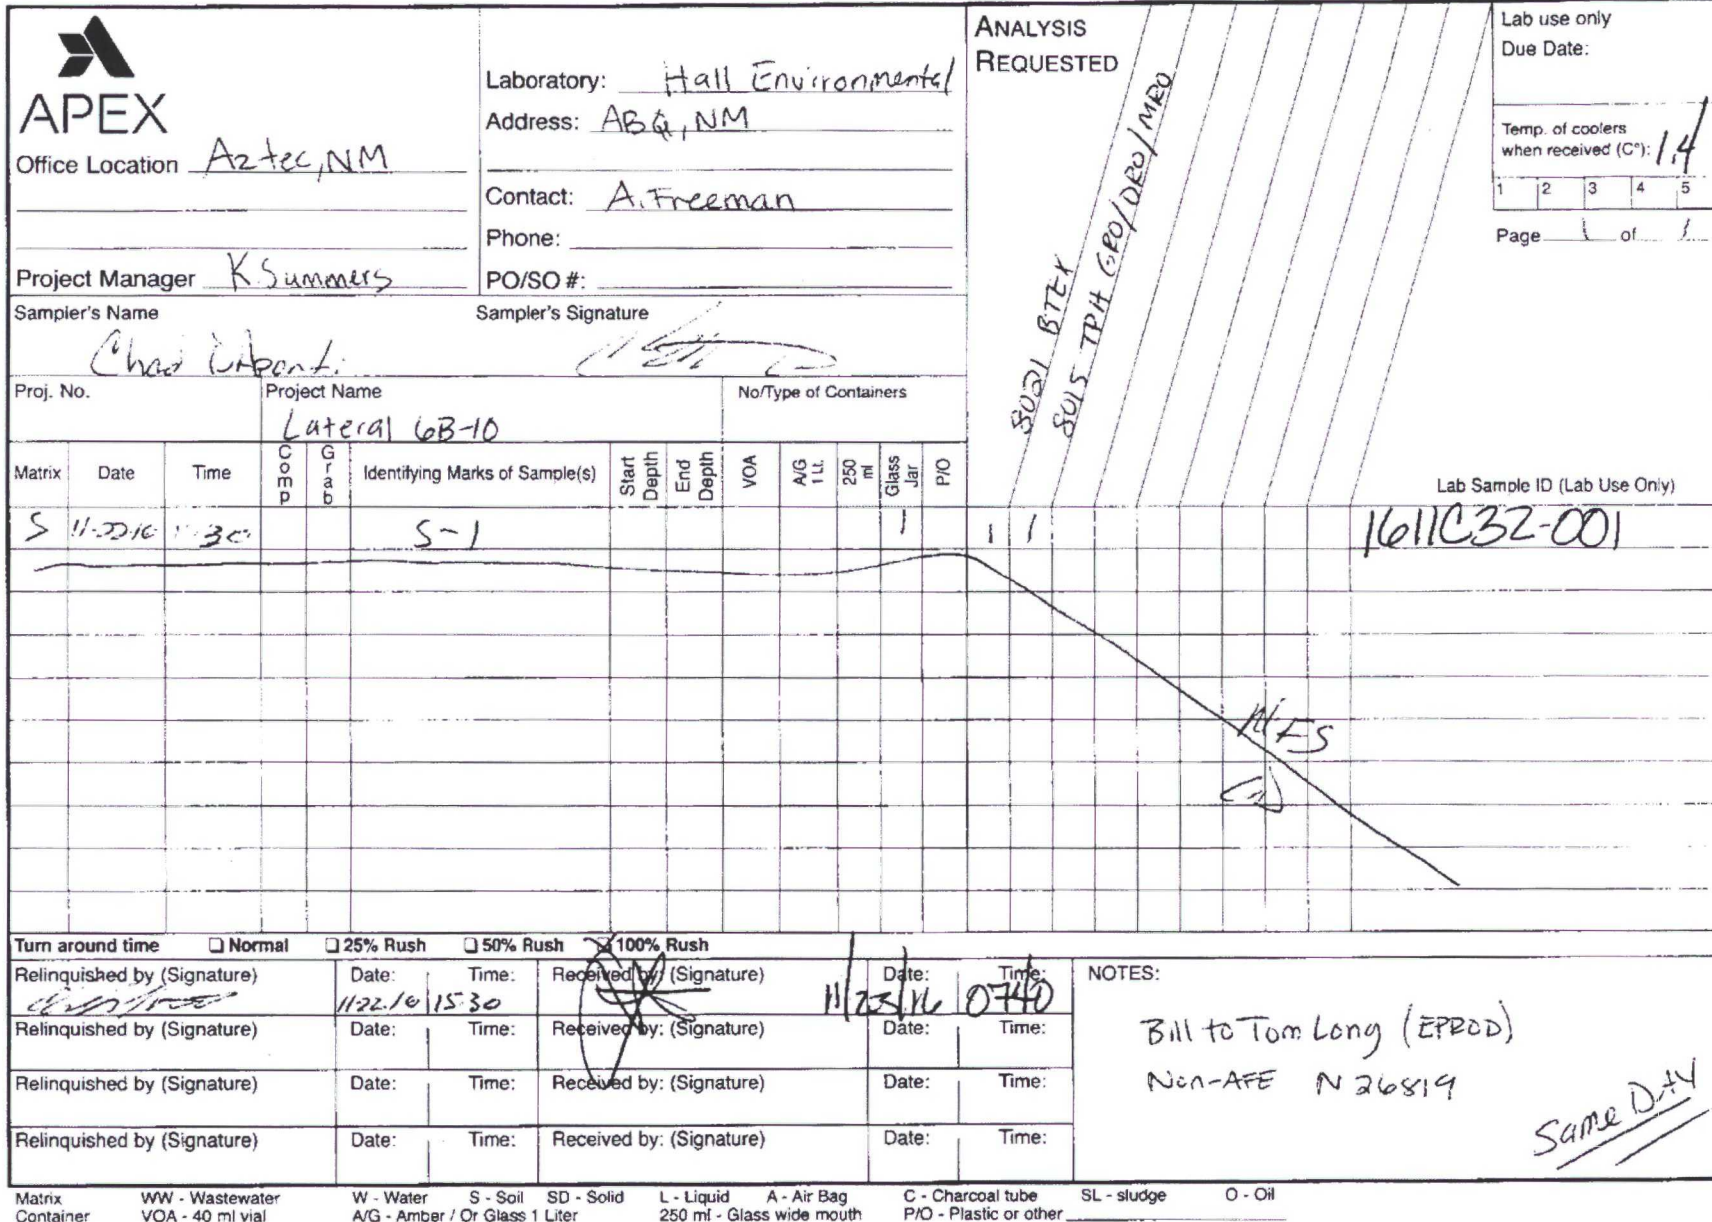 APEX
Office Location Aztec, NM
Project Manager K Summers
Laboratory: Hall Environmental
Address: ABQ, NM
Contact: A. Freeman
Phone:
PO/SO #:
ANALYSIS
REQUESTED
8021 BTEX
8015 TPH GRO/DRO/MRO
Lab use only
Due Date:
Temp. of coolers
when received (C°): 1.4
1 2 3 4 5
Page 1 of 1
Sampler's Name
Chad
Sampler's Signature
Proj. No.
Project Name
Lateral 6B-10
No/Type of Containers
Matrix Date Time Comp Grab Identifying Marks of Sample(s) Start Depth End Depth VOA A/G 1 Lt. 250 ml Glass Jar P/O
Lab Sample ID (Lab Use Only)
S S-1 1 1 1 1611C32-001
Turn around time Normal 25% Rush 50% Rush 100% Rush
Relinquished by (Signature) Date: Time: Received by: (Signature) Date: Time:
11-22-16 15:30 11/23/16 0740
Relinquished by (Signature) Date: Time: Received by: (Signature) Date: Time:
Relinquished by (Signature) Date: Time: Received by: (Signature) Date: Time:
Relinquished by (Signature) Date: Time: Received by: (Signature) Date: Time:
NOTES:
Bill to Tom Long (EPROD)
Non-AFE N 26819
Same
Matrix WW - Wastewater W - Water S - Soil SD - Solid L - Liquid A - Air Bag C - Charcoal tube SL - sludge O - Oil
Container VOA - 40 ml vial A/G - Amber / Or Glass 1 Liter 250 ml - Glass wide mouth P/O - Plastic or other